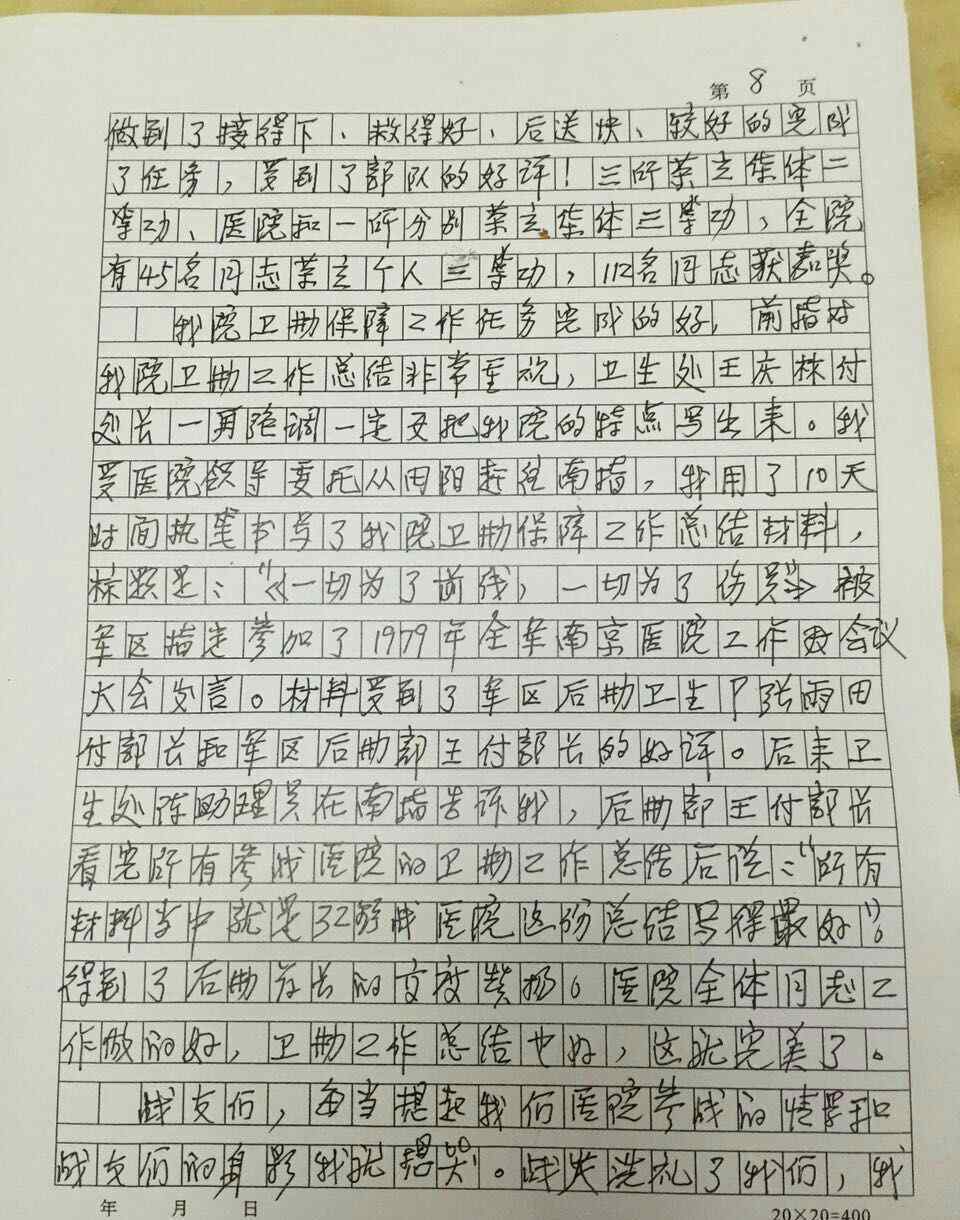 第 8 页
做到了接得下、救得好、后送快、较好的完成
了任务，受到了部队的好评！三所荣立集体二
等功、医院和一所分别荣立集体三等功，全院
有45名同志荣立个人三等功，112名同志获嘉奖。
我院卫勤保障工作任务完成的好，前指对
我院卫勤工作总结非常重视，卫生处王庆林付
处长一再强调一定要把我院的特点写出来。我
受医院领导委托从田阳赶往南指，我用了10天
时间执笔书写了我院卫勤保障工作总结材料，
标题是："《一切为了前线，一切为了伤员》被
军区指定参加了1979年全军南京医院工作会议
大会发言。材料受到了军区后勤卫生卩张雨田
付部长和军区后勤部王付部长的好评。后来卫
生处陈助理员在南指告诉我，后勤部王付部长
看完所有参战医院的卫勤工作总结后说："所有
材料当中就是32野战医院这份总结写得最好"。
得到了后勤首长的高度赞扬。医院全体同志工
作做的好，卫勤工作总结也好，这就完美了。
战友们，每当想起我们医院参战的情景和
战友们的身影我就想哭。战火洗礼了我们，我
年 月 日
20×20=400